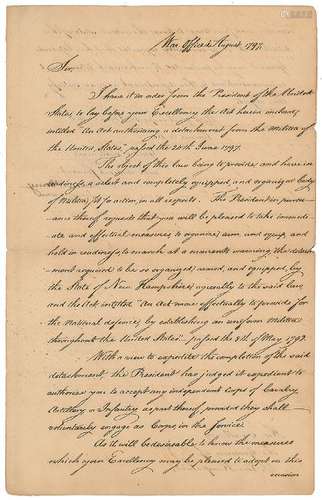 War Office August 1797.
Sir,
I have it in order from the President of the United
States, to lay before your Excellency the Act herein inclosed,
intitled "An Act authorising a detachment from the Militia of
the United States" passed the 24th June 1797.
The object of this law being to provide, and have in
readiness a select and completely equipped, and organized body
of Militia, fit for action, in all respects. The President in pursu-
ance thereof requests that you will be pleased to take immedi-
ate and effectual measures to organize, arm, and equip, and
hold in readiness to march at a moments warning, the detach-
ment required to be so organized, armed, and equipped, by
the State of New Hampshire, agreeably to the said law,
and the Act intitled "An Act more effectually to provide for
the national defence, by establishing an uniform Militia
throughout the United States" passed the 8th of May 1792.
With a view to expedite the completion of the said
detachment, the President has judged it expedient to
authorize you to accept any independent Corps of Cavalry
Artillery or Infantry as part thereof, provided they shall
voluntarily engage as Corps in the service.
As it will be desirable to know the measures
which your Excellency may be pleased to adopt on this
occasion